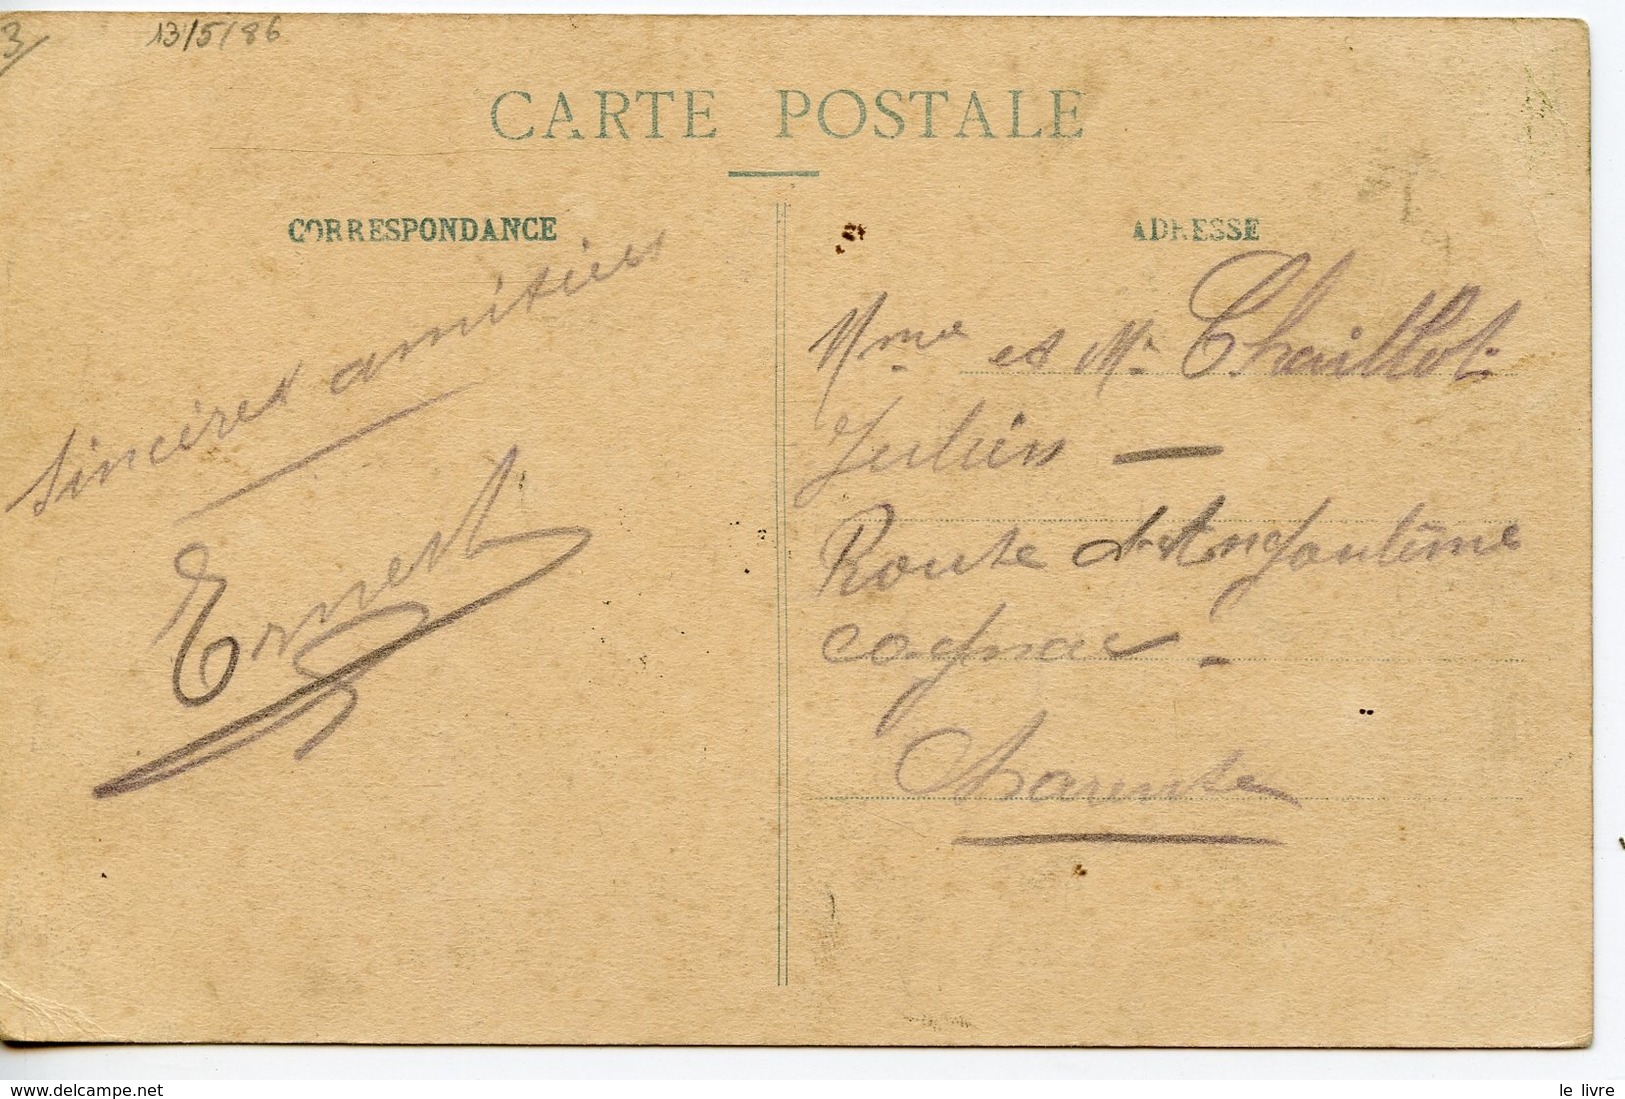 3
13/5/86
CARTE POSTALE
CORRESPONDANCE
ADRESSE
Sincères amitiés
Ernest
Mme et Mr Chaillot
Julien —
Route d'Angoulême
Cognac.
Charente
www.delcampe.net
le livre